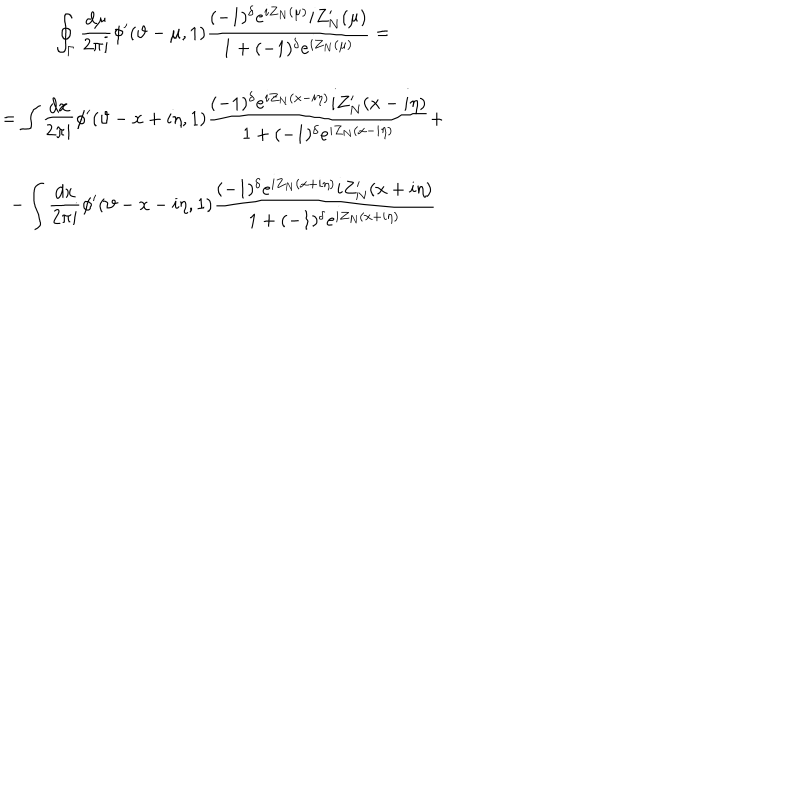 \oint_{\Gamma} \frac{d\mu}{2\pi i} \phi'(\vartheta - \mu, 1) \frac{(-1)^{\delta} e^{iZ_N(\mu)} i Z'_N(\mu)}{1 + (-1)^{\delta} e^{iZ_N(\mu)}} =
= \int \frac{dx}{2\pi i} \phi'(\vartheta - x + i\eta, 1) \frac{(-1)^{\delta} e^{iZ_N(x - i\eta)} i Z'_N(x - i\eta)}{1 + (-1)^{\delta} e^{iZ_N(x - i\eta)}} +
- \int \frac{dx}{2\pi i} \phi'(\vartheta - x - i\eta, 1) \frac{(-1)^{\delta} e^{iZ_N(x + i\eta)} i Z'_N(x + i\eta)}{1 + (-1)^{\delta} e^{iZ_N(x + i\eta)}}